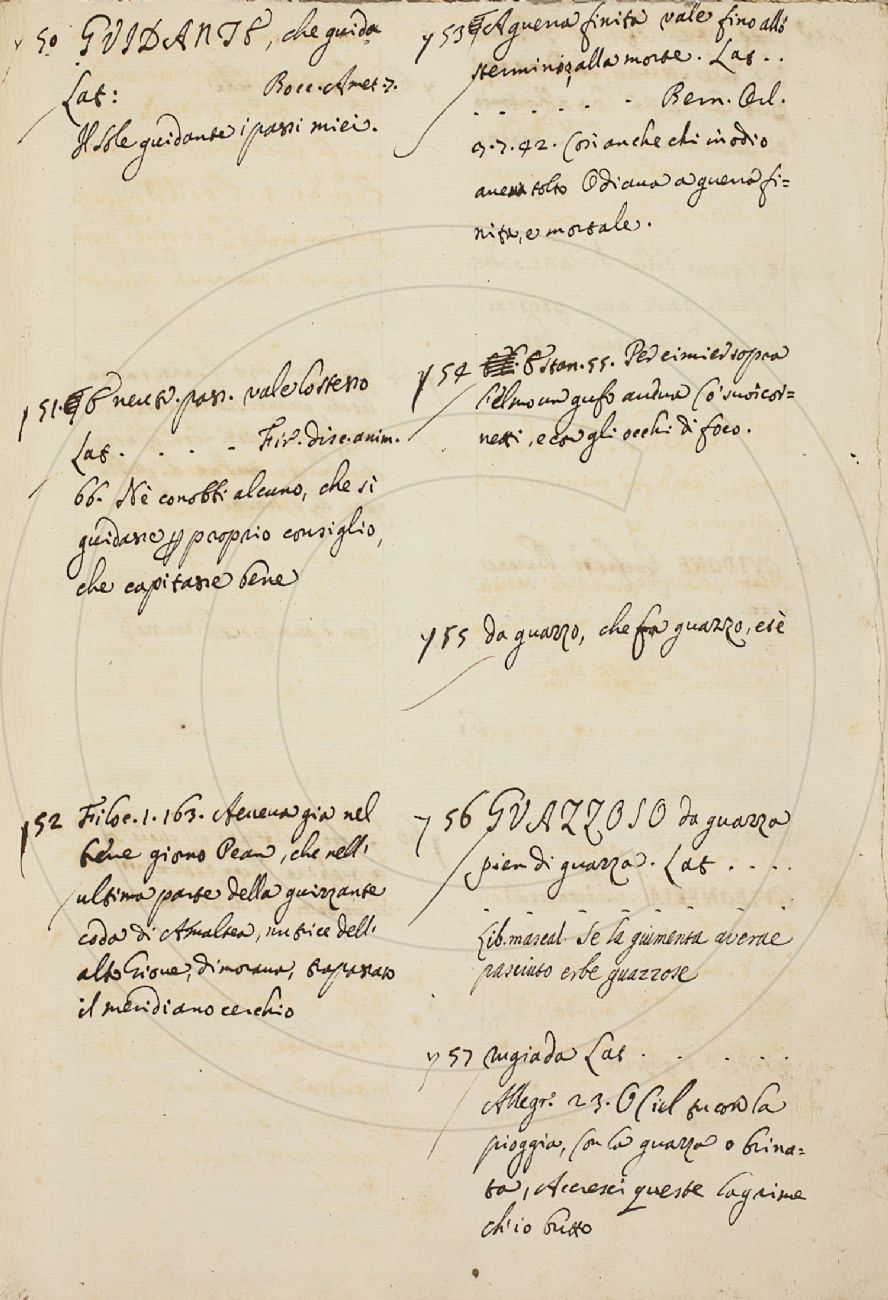 y 50 GVIDANTE, che guida
Lat: Bocc. Amet. 7.
Il Sole guidante i passi miei.
y 51. § E neutr. pass. vale lo stesso
Lat. . . . . Fir. disc. anim.
66. Nè conobbi alcuno, che si
guidasse per proprio consiglio,
che capitasse bene
y 52 Filoc. 1. 163. Aveva già nel
giorno Pean, che nell'
ultima parte della guizzante
coda di Amaltea, nutrice dell'
alto Giove, dimorava, trapassato
il meridiano cerchio
y 53 § A guerra finita vale fino allo
sterminio, alla morte. Lat. .
. . . . . . Bern. Orl.
2. 7. 42. Così anche chi in odio
aveva tolto Odiava a guerra fi=
nita, e mortale.
y 54 E stan. 55. Per cimier sopra
l'elmo un gufo aveva Co' suoi cor=
netti, e con gli occhi di foco.
y 55 da guazzo, che fa guazzo, ed è
y 56 GVAZZOSO da guazza
pien di guazza. Lat . . . .
. . . . . . .
Lib. mascal. Se la giumenta averae
pasciuto erbe guazzose
y 57 rugiada Lat . . . . .
Allegr. 23. O Ciel tu con la
pioggia, Con la guazza o brina=
ta, Accresci queste lagrime
ch'io butto